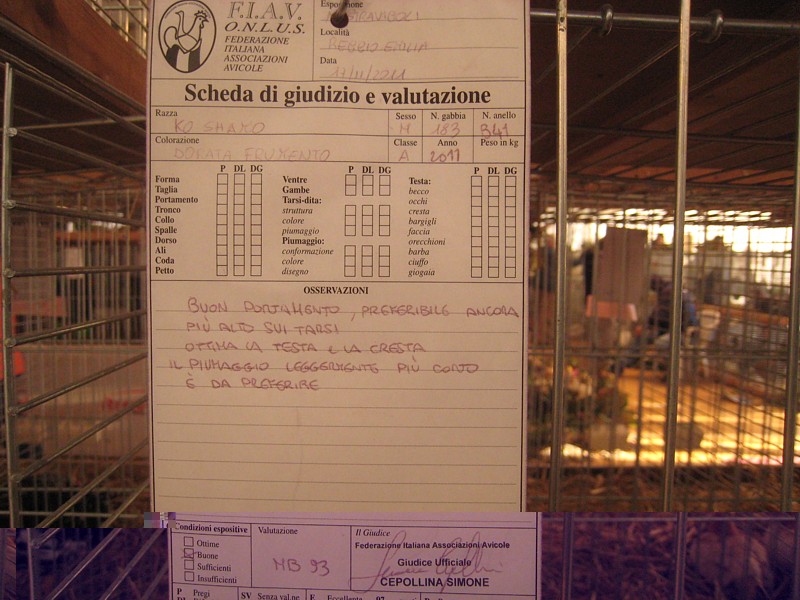 F.I.A.V.
O.N.L.U.S.
FEDERAZIONE
ITALIANA
ASSOCIAZIONI
AVICOLE
Località
REGGIO EMILIA
Data
Scheda di giudizio e valutazione
Razza
KO SHAMO
Sesso
M
N. gabbia
183
N. anello
Colorazione
DORATA FRUMENTO
Classe
A
Anno
2011
Peso in kg
P DL DG
P DL DG
P DL DG
Forma
Taglia
Portamento
Tronco
Collo
Spalle
Dorso
Ali
Coda
Petto
Ventre
Gambe
Tarsi-dita:
struttura
colore
piumaggio
Piumaggio:
conformazione
colore
disegno
Testa:
becco
occhi
cresta
bargigli
faccia
orecchioni
barba
ciuffo
giogaia
OSSERVAZIONI
BUON PORTAMENTO, PREFERIBILE ANCORA
PIÙ ALTO SUI TARSI
OTTIMA LA TESTA E LA CRESTA
IL PIUMAGGIO LEGGERMENTE PIÙ CORTO
È DA PREFERIRE
Condizioni espositive
Ottime
Buone
Sufficienti
Insufficienti
Valutazione
MB 93
Il Giudice
Federazione Italiana Associazioni Avicole
Giudice Ufficiale
CEPOLLINA SIMONE
P Pregi
SV Senza val.ne